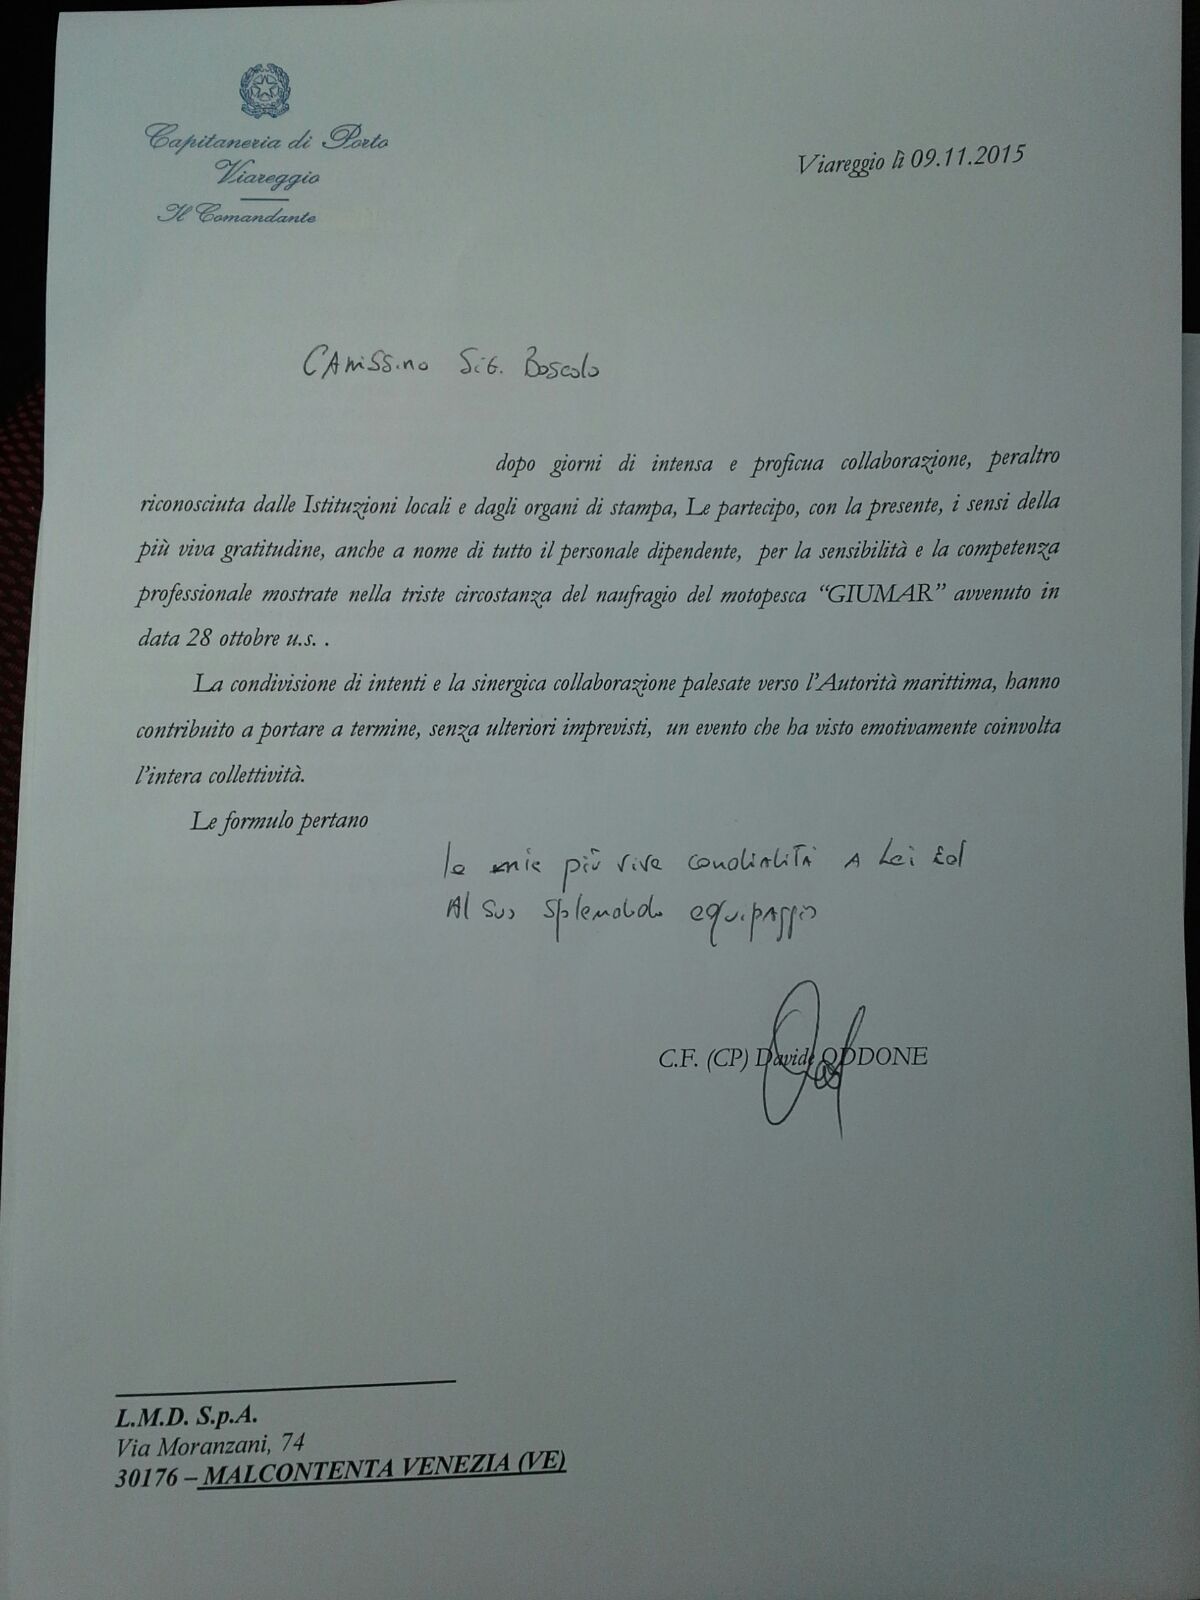 Capitaneria di Porto
Viareggio
Il Comandante
Viareggio lì 09.11.2015
CARISSIMO SIG. Boscolo
dopo giorni di intensa e proficua collaborazione, peraltro
riconosciuta dalle Istituzioni locali e dagli organi di stampa, Le partecipo, con la presente, i sensi della
più viva gratitudine, anche a nome di tutto il personale dipendente, per la sensibilità e la competenza
professionale mostrate nella triste circostanza del naufragio del motopesca “GIUMAR” avvenuto in
data 28 ottobre u.s. .
La condivisione di intenti e la sinergica collaborazione palesate verso l’Autorità marittima, hanno
contribuito a portare a termine, senza ulteriori imprevisti, un evento che ha visto emotivamente coinvolta
l’intera collettività.
Le formulo pertano
le mie più vive cordialità A Lei Ed
Al suo splendido equipaggio
C.F. (CP) Davide ODDONE
L.M.D. S.p.A.
Via Moranzani, 74
30176 – MALCONTENTA VENEZIA (VE)